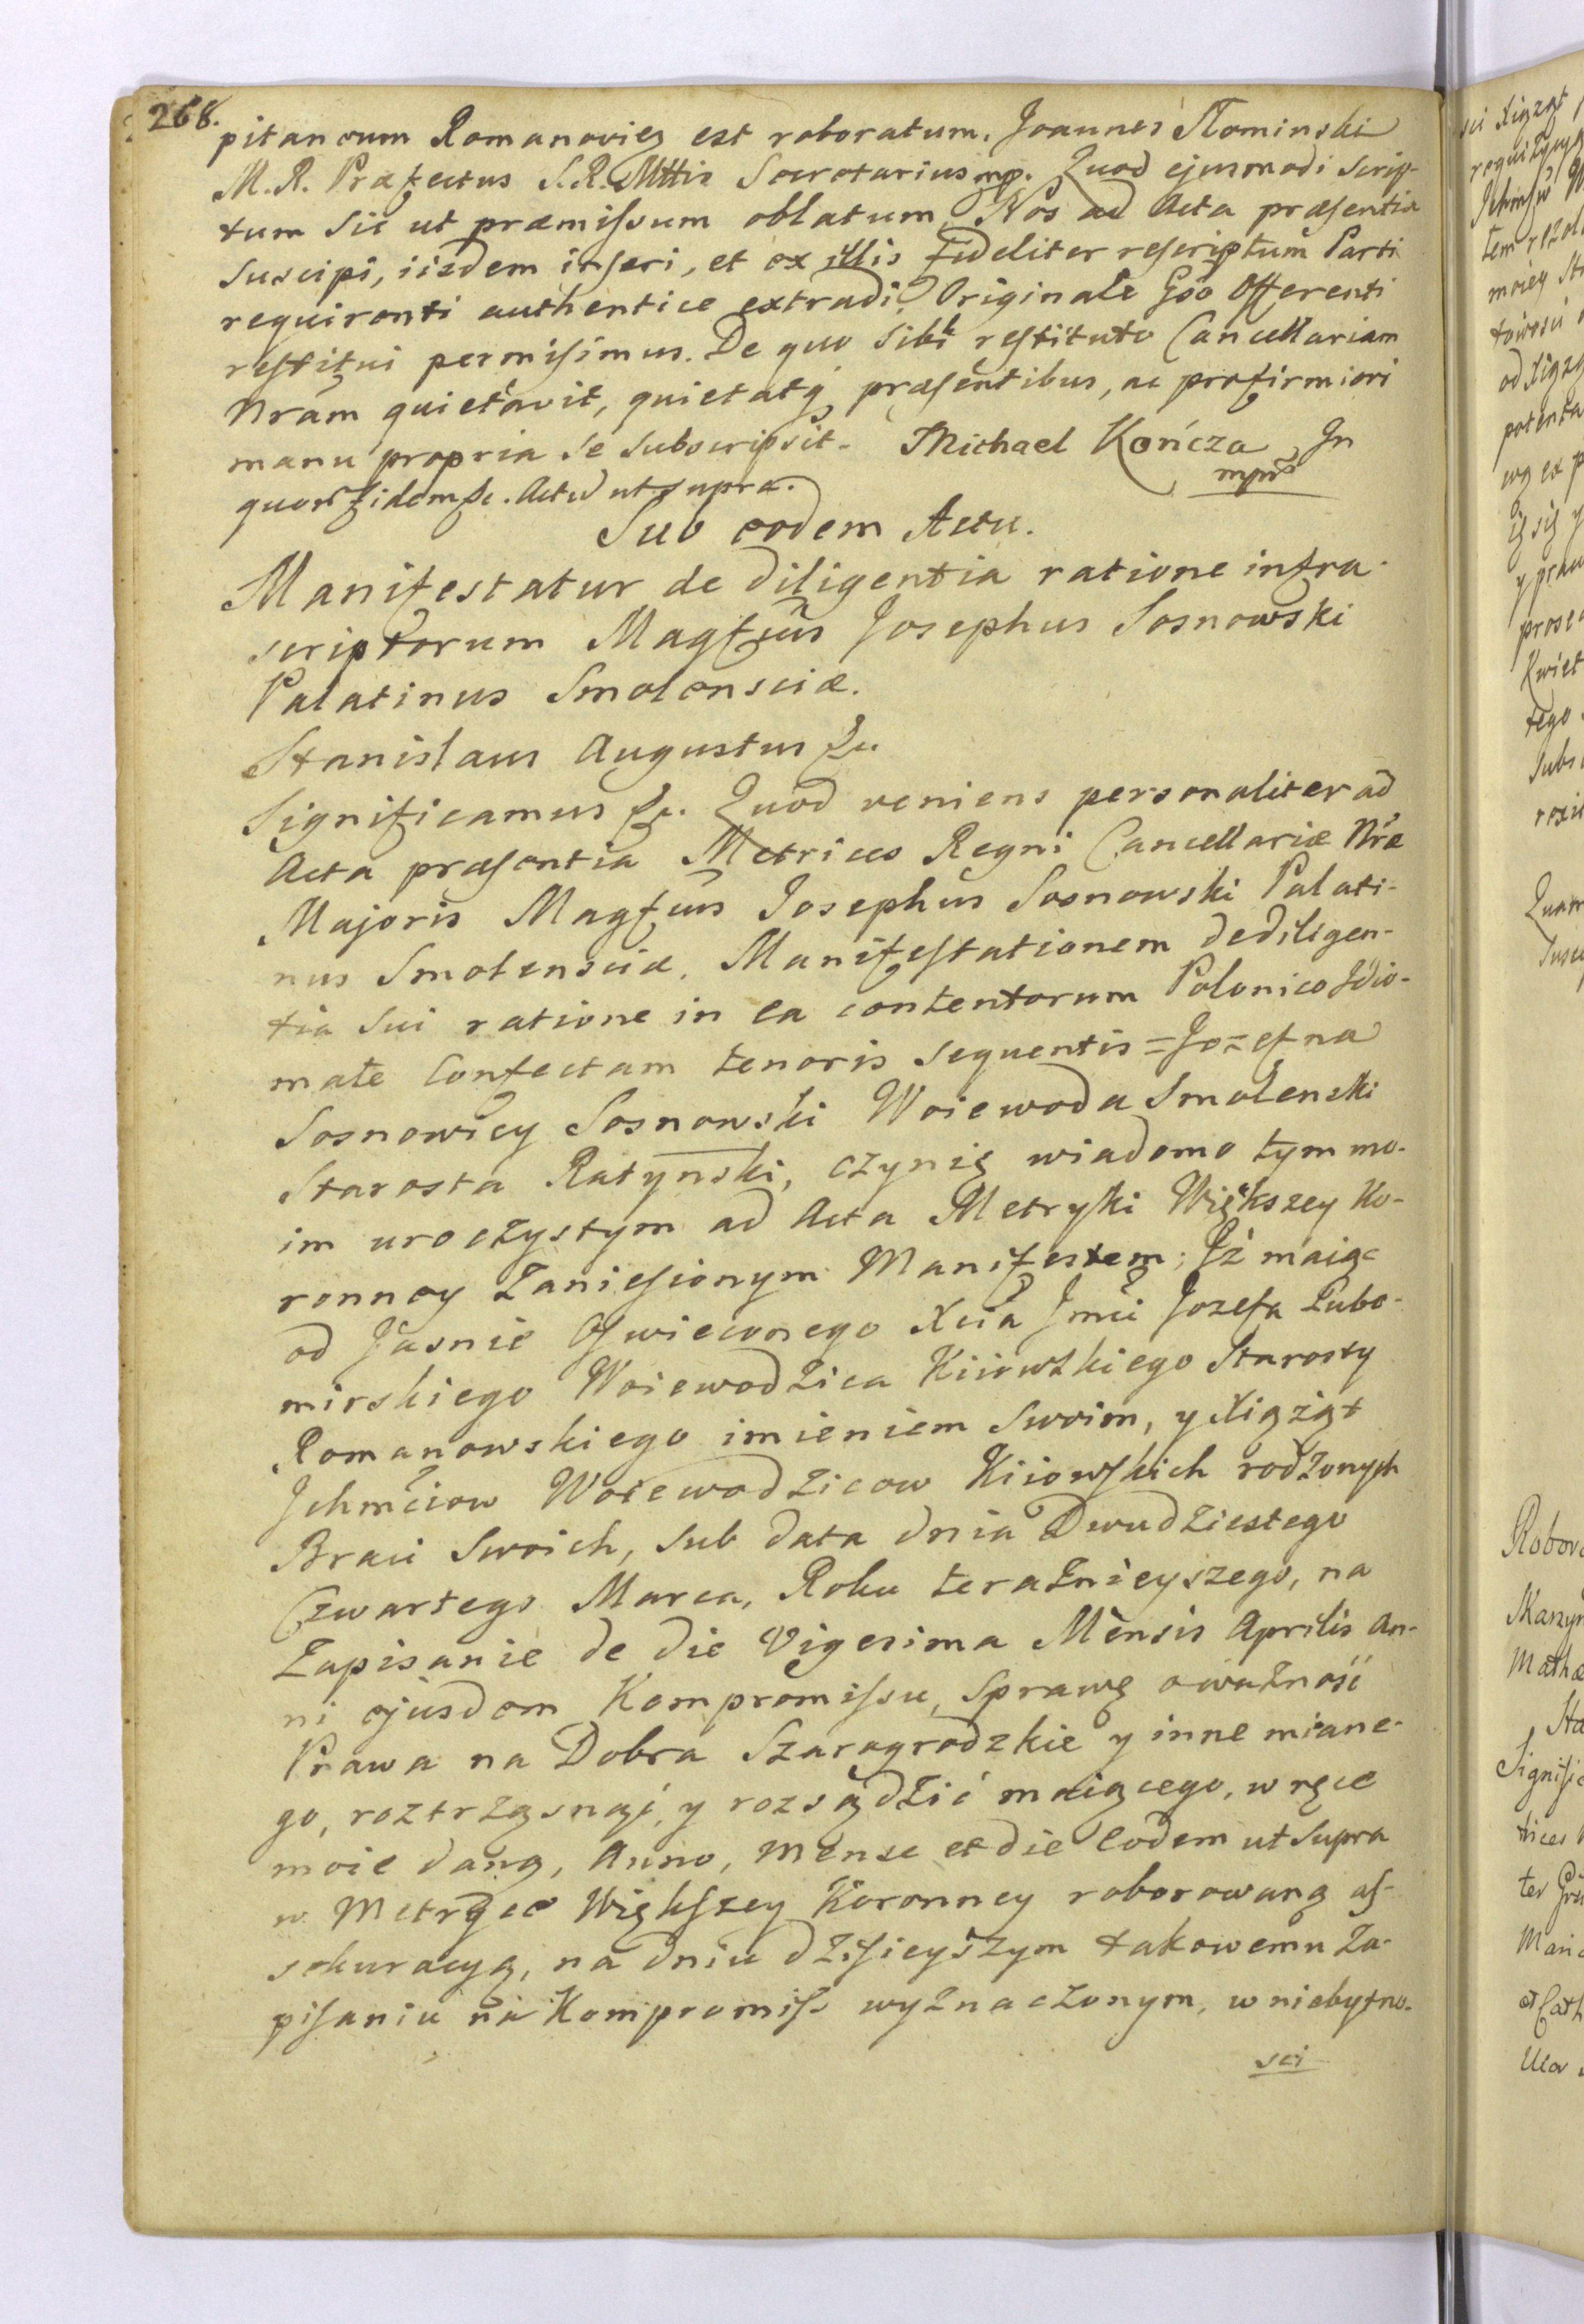 268.
pitaneum Romanovicz est roboratum. Joannes Słominski
M. R. Præfectus S. R. Mttis Secretarius mp. Quod ejusmodi Scrip-
tum Sic ut præmissum oblatum, Nos ad Acta præsentia
Suscipi, iisdem inseri, et ex illis fideliter rescriptum Parti
requirenti authentice extradi, Originale Gso Offerenti
restitui permisimus. De quo Sibi restituto Cancellariam
Nram quietavit, quietatq. præsentibus, ac pro firmiori
manu propria Se Subscripsit. Michael Kończa In
mpria
quor. fidem &c. Act. ut supra.
Sub eodem Actu.
Manifestatur de diligentia ratione infra-
scriptorum Magfcus Josephus Sosnowski
Palatinus Smolensciæ.
Stanislaus Augustus &c.
Significamus &c. Quod veniens personaliter ad
Acta præsentia Metrices Regni Cancellariæ Nræ
Majoris Magfcus Josephus Sosnowski Palati-
nus Smolensciæ, Manifestationem de diligen-
tia Sui ratione in ea contentorum Polonico Idio-
mate Confectam tenoris sequentis = Jozef na
Sosnowicy Sosnowski Woiewoda Smolenski
Starosta Ratynski, czynię wiadomo tym mo-
im uroczystym ad Acta Metryki Większey Ko-
ronney Zaniesionym Manifestem; Iż maiąc
od Jasnie Oswieconego Xcia Jmci Jozefa Lubo-
mirskiego Woiewodzica Kiiowskiego Starosty
Romanowskiego imieniem Swoim, y Xiążąt
Ichmciow Woiewodzicow Kiiowskich rodzonych
Braci Swoich, Sub data dnia Dwudziestego
Czwartego Marca, Roku teraznieyszego, na
Zapisanie de die Vigesima Mensis Aprilis An-
ni ejusdem Kompromissu, Sprawę o ważność
Prawa na Dobra Szarogrodzkie y inne miane-
go, roztrząsnąć, y rozsądzić maiącego, w ręce
moie daną, Anno, Mense et die eodem ut Supra
w Metryce Większey Koronney roborowaną as-
sekuracyą, na dniu dzisieyszym takowemu Za-
pisaniu na Kompromiss wyznaczonym, w niebytno-
sci